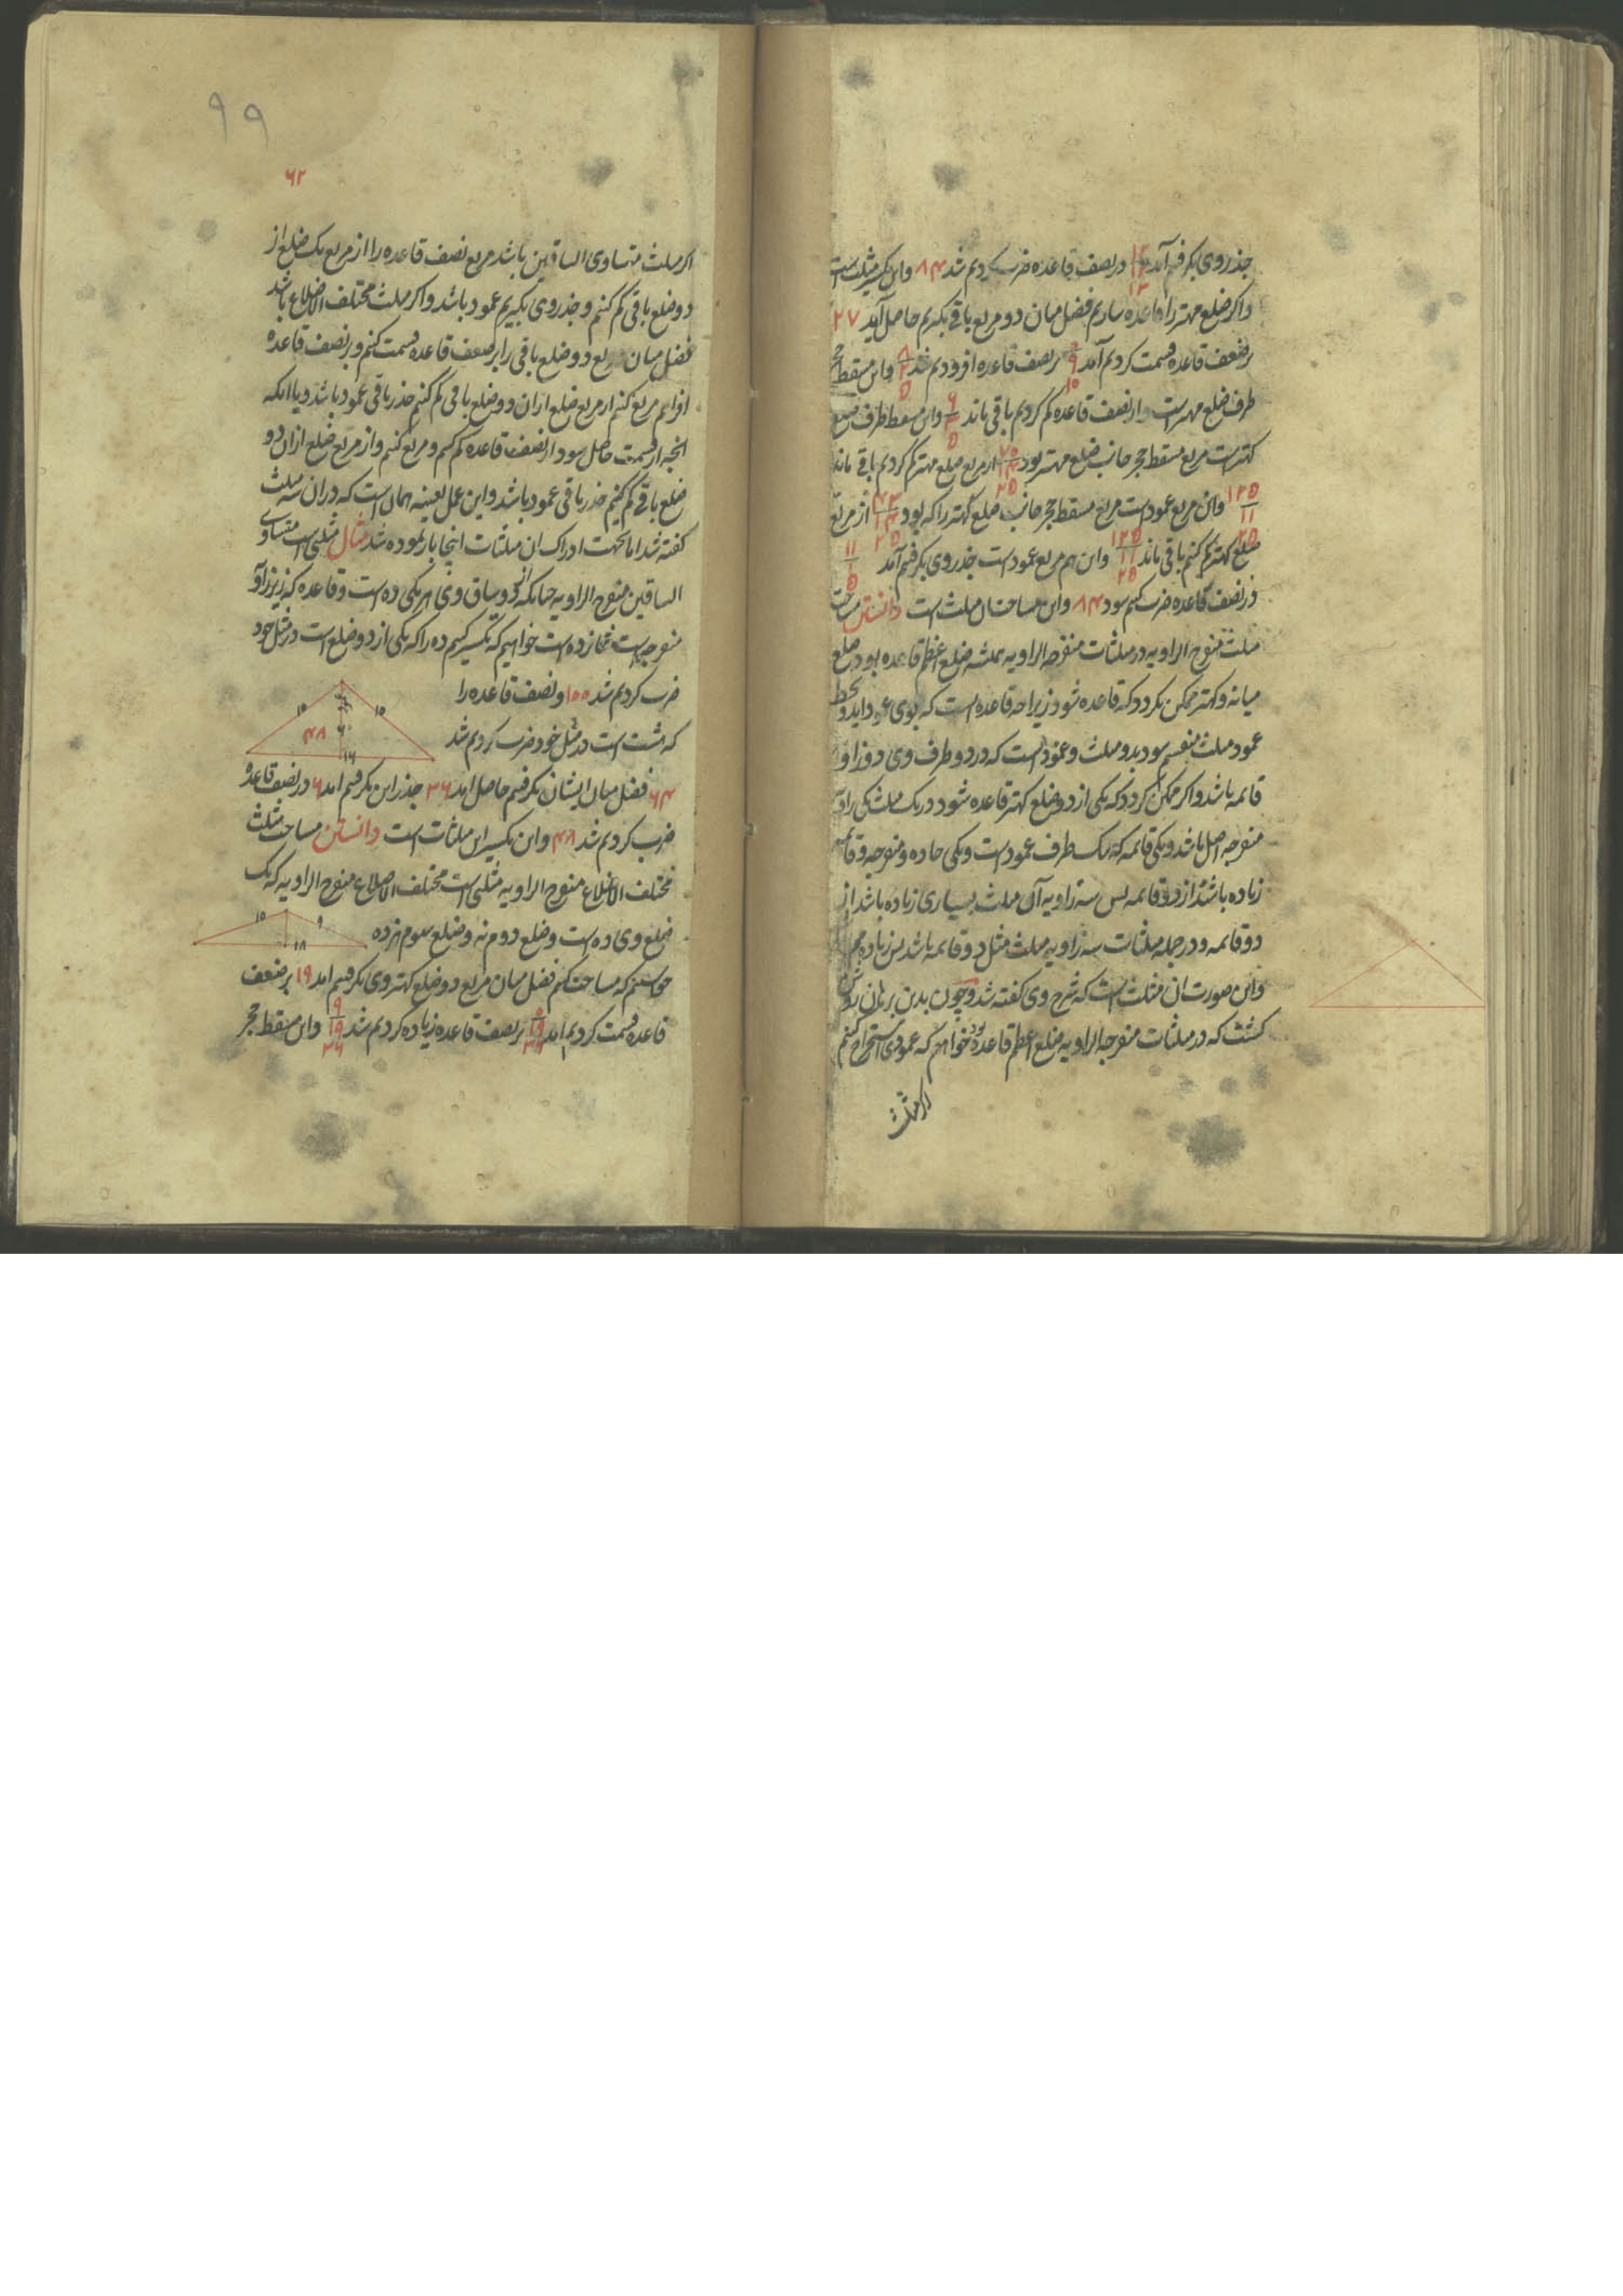 جذر وی بگرفتیم آمد در نصف قاعده ضرب کردیم شد ۸۴ و این تکسیر مثلث است
و اگر ضلع مهتر را قاعده سازیم فضل میان دو مربع باقی بگیریم حاصل آید ۲۷
بر ضعف قاعده قسمت کردیم آمد ۹ ۱۰ بر نصف قاعده افزودیم شد ۸ ۲ ۵ و این مسقط حجر
طرف ضلع مهترست و از نصف قاعده کم کردیم باقی ماند ۶ ۳ ۵ و این مسقط طرف ضلع
کهترست مربع مسقط حجر جانب ضلع مهتر بود از مربع ضلع مهتر کم کردیم باقی ماند
۱۲۵ ۱۱ ۲۵ و این مربع عمودست مربع مسقط حجر جانب ضلع کهتر را که بود ۴۳ ۱۴ ۲۵ از مربع
ضلع کهتر کم کنیم باقی ماند ۱۲۵ ۱۱ ۲۵ و این هم مربع عمودست جذر وی بگرفتیم آمد ۱۱ ۱ ۵
در نصف قاعده ضرب کنیم شود ۸۴ و این مساحت آن مثلث است دانستن مساحت
مثلث منفرج الزاویه در مثلثات منفرجه الزاویه همیشه ضلع اعظم قاعده بود و ضلع
میانه و کهتر ممکن نگردد که قاعده شود زیرا چه قاعده است که بوی عمود آید و بخط
عمود مثلث منقسم شود بدو مثلث و عمود است که در دو طرف وی دو زاویه
قائمه باشد و اگر ممکن گردد که یکی از دو ضلع کهتر قاعده شود در یک مثلث یکی زاویه
منفرجه اصل باشد و یکی قائمه که یک طرف عمودست و یکی حاده و منفرجه و قائمه
زیاده باشد از دو قائمه پس سه زاویه آن مثلث بسیاری زیاده باشد از
دو قائمه و در جمله مثلثات سه زاویه مثلث مثل دو قائمه باشد پس زیاده محال
و این صورت آن مثلث است که شرح وی گفته شد و چون بدین برهان روشن
گشت که در مثلثات منفرجه الزاویه ضلع اعظم قاعده بود خواهیم که عمودی استخراج کنیم
اگر مثلث
۹۹
۶۲
اگر مثلث متساوی الساقین باشد مربع نصف قاعده را از مربع یک ضلع از
دو ضلع باقی کم کنیم و جذر وی بگیریم عمود باشد و اگر مثلث مختلف الاضلاع باشد
فضل میان مربع دو ضلع باقی را بر ضعف قاعده قسمت کنیم و بر نصف قاعده
افزاییم مربع کنیم از مربع ضلع از آن دو ضلع باقی کم کنیم جذر باقی عمود باشد و یا آنکه
آنچه از قسمت حاصل شود از نصف قاعده کم کنیم و مربع کنیم و از مربع ضلع از آن دو
ضلع باقی کم کنیم جذر باقی عمود باشد و این عمل بعینه همان است که در آن سه مثلث
گفته شد اما بجهت ادراک آن مثلثات اینجا باز نموده شد مثال مثلثی است متساوی
الساقین منفرج الزاویه چنانکه دو ساق وی هر یکی ده است و قاعده که زیر زاویه
منفرجه است شانزده است خواهیم که تکسیر کنیم ده را که یکی از دو ضلع است در مثل خود
ضرب کردیم شد ۱۰۰ و نصف قاعده را
که هشت است در مثل خود ضرب کردیم شد
۱۰ ۱۰ ۴۸ ۶ ۱۶
۶۴ فضل میان ایشان بگرفتیم حاصل آمد ۳۶ جذر این بگرفتیم آمد ۶ در نصف قاعده
ضرب کردیم شد ۴۸ و این تکسیر این مثلثات است دانستن مساحت مثلث
مختلف الاضلاع منفرج الزاویه مثلثی است مختلف الاضلاع منفرج الزاویه که یک
ضلع وی ده است و ضلع دوم نه و ضلع سوم هژده
۱۰ ۹ ۱۸
خواستیم که مساحت کنیم فضل میان مربع دو ضلع کهتر وی بگرفتیم آمد ۱۹ بر ضعف
قاعده قسمت کردیم آمد ۰ ۱۹ ۳۶ بر نصف قاعده زیاده کردیم شد ۹ ۱۹ ۳۶ و این مسقط حجر